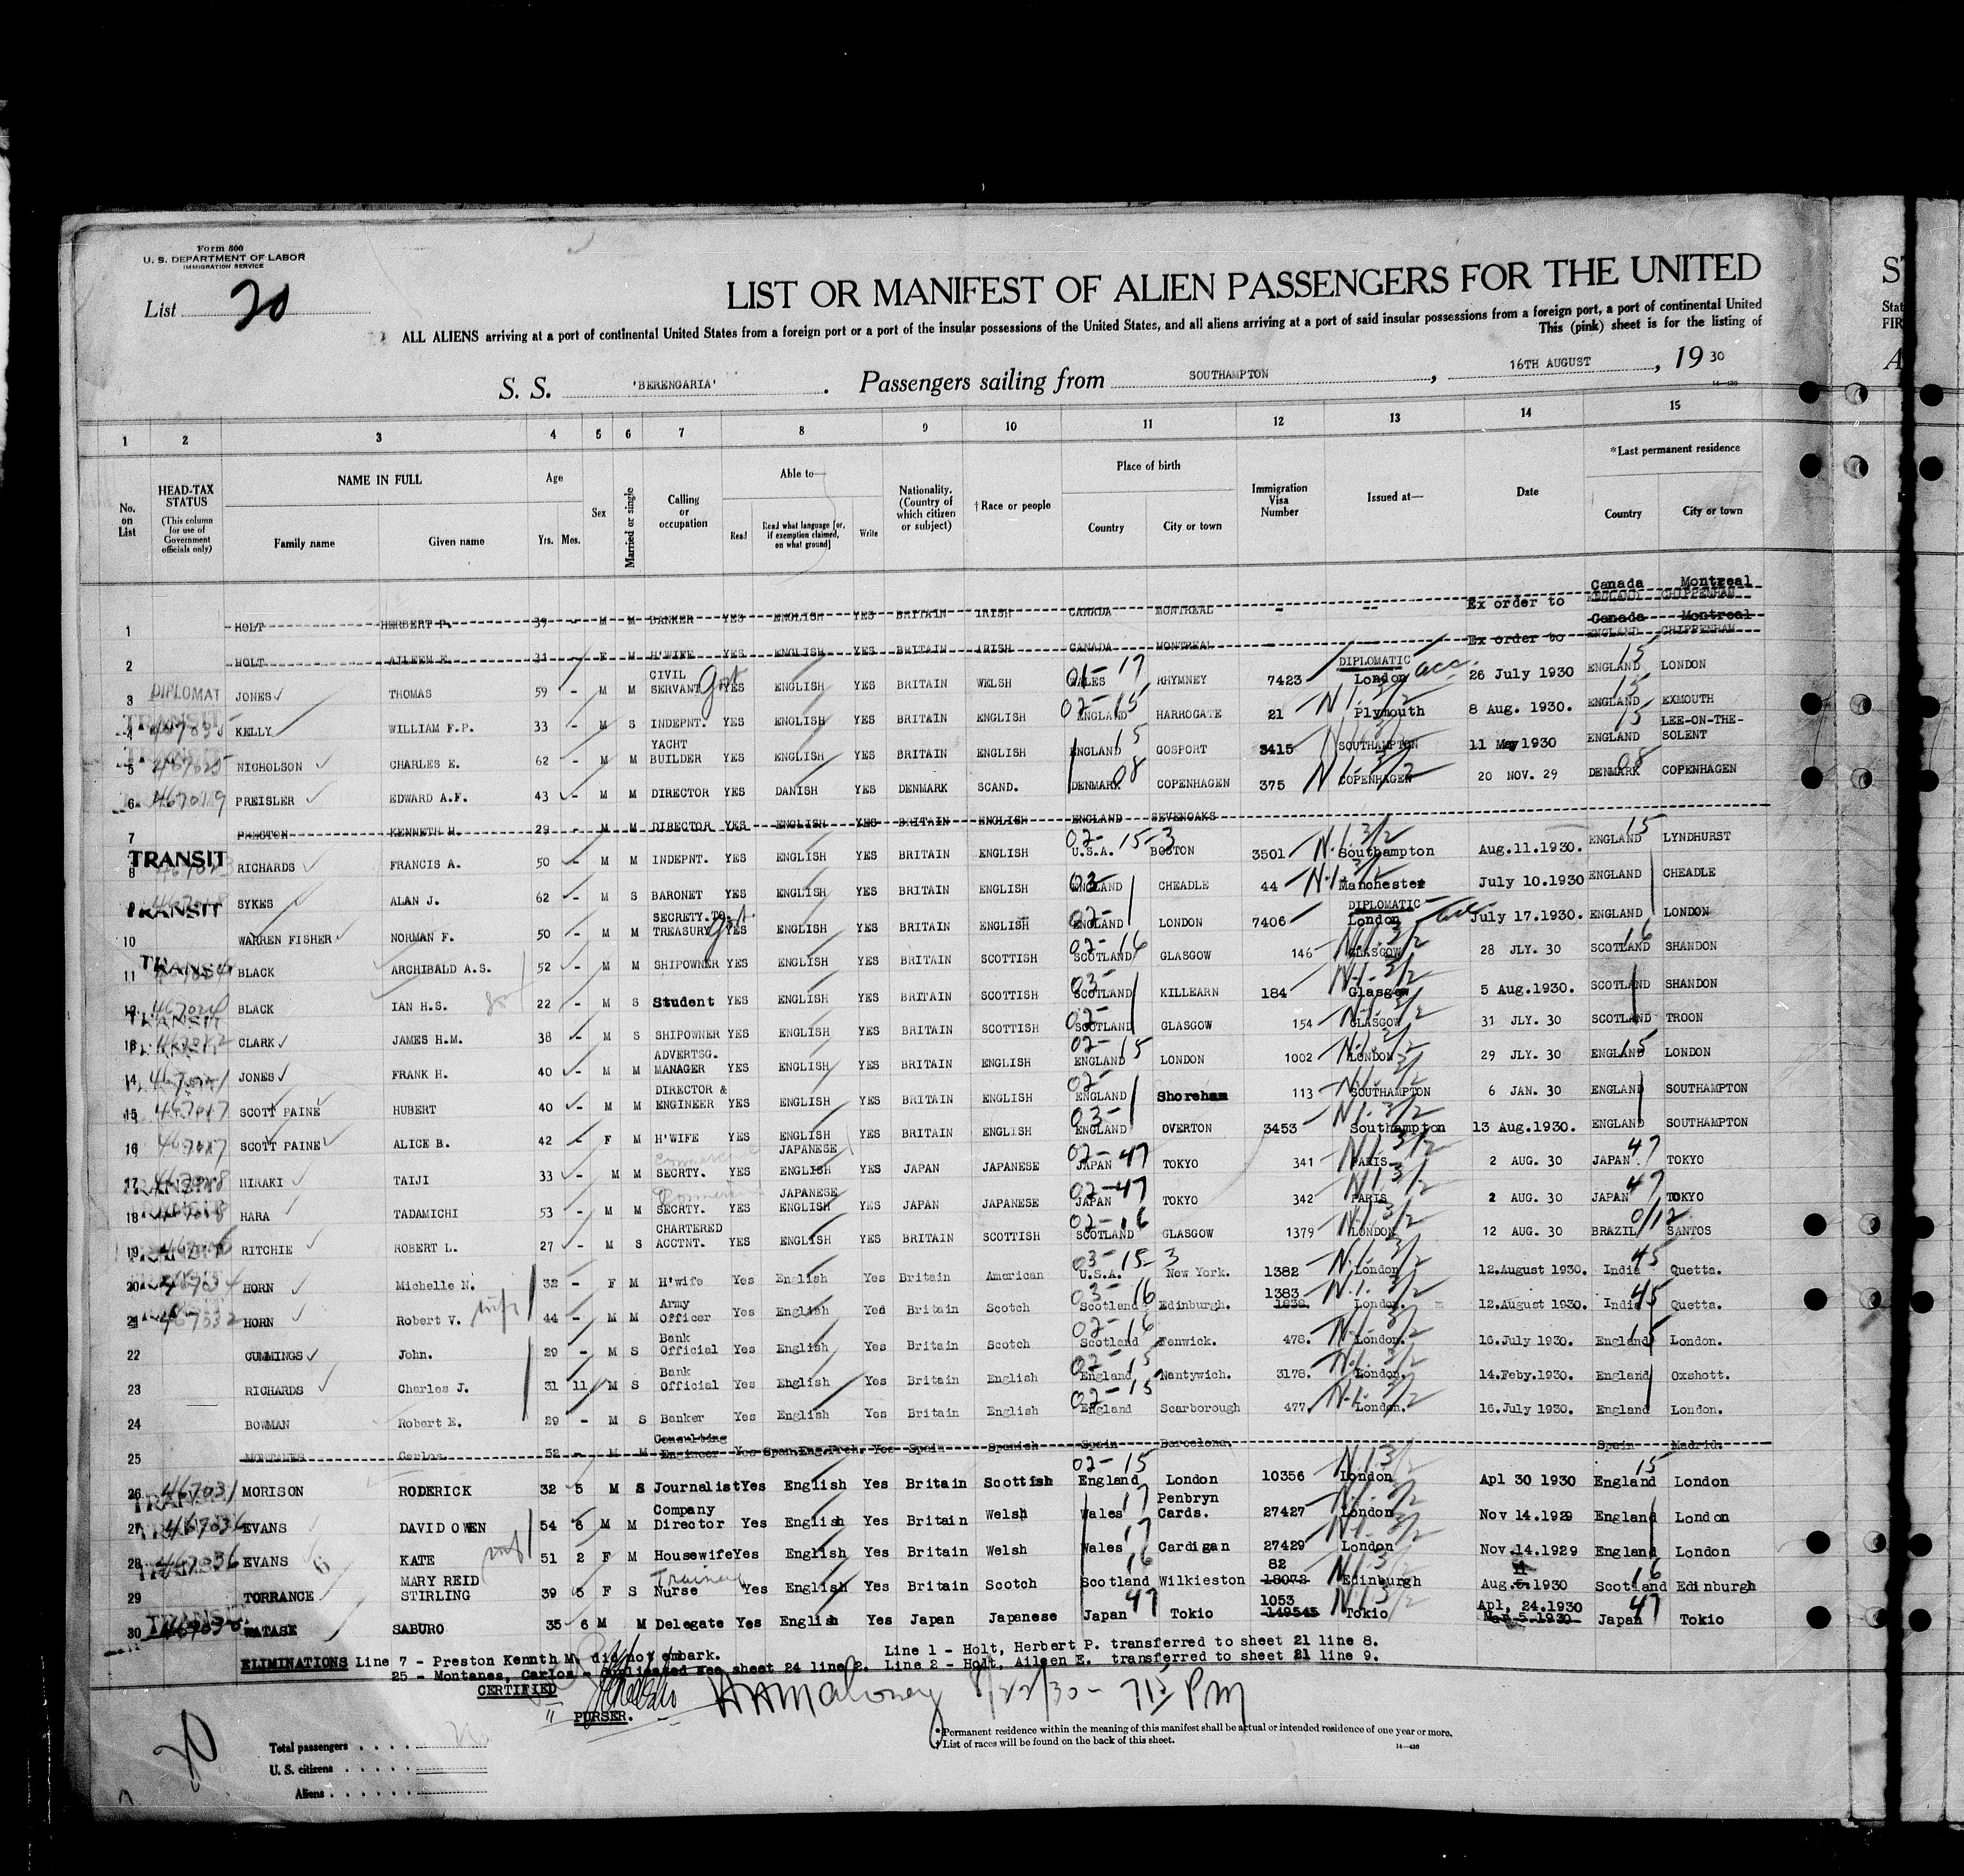 Form 500
U. S. DEPARTMENT OF LABOR
IMMIGRATION SERVICE
List 20
LIST OR MANIFEST OF ALIEN PASSENGERS FOR THE UNITED
ALL ALIENS arriving at a port of continental United States from a foreign port or a port of the insular possessions of the United States, and all aliens arriving at a port of said insular possessions from a foreign port, a port of continental United
This (pink) sheet is for the listing of
S. S. 'BERENGARIA' . Passengers sailing from SOUTHAMPTON , 16TH AUGUST , 19 30
1 2 3 4 5 6 7 8 9 10 11 12 13 14 15
No. on List
HEAD-TAX STATUS (This column for use of Government officials only)
NAME IN FULL
Family name Given name
Age
Yrs. Mos.
Sex
Married or single
Calling or occupation
Able to—
Read Read what language [or, if exemption claimed, on what ground] Write
Nationality. (Country of which citizen or subject)
†Race or people
Place of birth
Country City or town
Immigration Visa Number
Issued at—
Date
*Last permanent residence
Country City or town
1 HOLT HERBERT P. 39 - M M BANKER YES ENGLISH YES BRITAIN IRISH CANADA MONTREAL - -- Ex order to Canada Montreal ENGLAND CHIPPENHAM
2 HOLT AILEEN E. 31 - F M H'WIFE YES ENGLISH YES BRITAIN IRISH CANADA MONTREAL Ex order to Canada Montreal ENGLAND CHIPPENHAM
3 DIPLOMAT JONES THOMAS 59 - M M CIVIL SERVANT Gvt YES ENGLISH YES BRITAIN WELSH 01-17 WALES RHYMNEY 7423 DIPLOMATIC London acc. 26 July 1930 ENGLAND 15 LONDON
4 TRANSIT KELLY WILLIAM F.P. 33 - M S INDEPNT. YES ENGLISH YES BRITAIN ENGLISH 02-15 ENGLAND HARROGATE 21 N.I. 3/2 Plymouth 8 Aug. 1930. ENGLAND 15 EXMOUTH
5 TRANSIT NICHOLSON CHARLES E. 62 - M M YACHT BUILDER YES ENGLISH YES BRITAIN ENGLISH ENGLAND 15 GOSPORT 3415 N.I. 3/2 SOUTHAMPTON 11 May 1930 ENGLAND 15 LEE-ON-THE-SOLENT
6 PREISLER EDWARD A.F. 43 - M M DIRECTOR YES DANISH YES DENMARK SCAND. DENMARK 08 COPENHAGEN 375 N.I. 3/2 COPENHAGEN 20 NOV. 29 DENMARK 08 COPENHAGEN
7 PRESTON KENNETH M. 29 - M M DIRECTOR YES ENGLISH YES BRITAIN ENGLISH ENGLAND SEVENOAKS
8 TRANSIT RICHARDS FRANCIS A. 50 - M M INDEPNT. YES ENGLISH YES BRITAIN ENGLISH 02-15-3 U.S.A. BOSTON 3501 N.I. 3/2 Southampton Aug.11.1930. ENGLAND 15 LYNDHURST
9 TRANSIT SYKES ALAN J. 62 - M S BARONET YES ENGLISH YES BRITAIN ENGLISH 02- ENGLAND CHEADLE 44 N.I. 3/2 Manchester July 10.1930 ENGLAND CHEADLE
10 WARREN FISHER NORMAN F. 50 - M M SECRETY.TO. TREASURY Gvt. YES ENGLISH YES BRITAIN ENGLISH 02- ENGLAND LONDON 7406 DIPLOMATIC London July 17.1930. ENGLAND LONDON
11 TRANSIT BLACK ARCHIBALD A.S. 52 - M M SHIPOWNER YES ENGLISH YES BRITAIN SCOTTISH 02-16 SCOTLAND GLASGOW 146 N.I. 3/2 GLASGOW 28 JLY. 30 SCOTLAND 16 SHANDON
12 TRANSIT BLACK IAN H.S. 22 - M S Student YES ENGLISH YES BRITAIN SCOTTISH 03- SCOTLAND KILLEARN 184 N.I. 3/2 Glasgow 5 Aug.1930. SCOTLAND SHANDON
13 CLARK JAMES H.M. 38 - M S SHIPOWNER YES ENGLISH YES BRITAIN SCOTTISH 02- SCOTLAND GLASGOW 154 N.I. 3/2 GLASGOW 31 JLY. 30 SCOTLAND TROON
14 JONES FRANK H. 40 - M M ADVERTSG. MANAGER YES ENGLISH YES BRITAIN ENGLISH 02-15 ENGLAND LONDON 1002 N.I. 3/2 LONDON 29 JLY. 30 ENGLAND 15 LONDON
15 SCOTT PAINE HUBERT 40 - M M DIRECTOR & ENGINEER YES ENGLISH YES BRITAIN ENGLISH 02- ENGLAND Shoreham 113 N.I. 3/2 SOUTHAMPTON 6 JAN. 30 ENGLAND SOUTHAMPTON
16 SCOTT PAINE ALICE B. 42 - F M H'WIFE YES ENGLISH YES BRITAIN ENGLISH 03- ENGLAND OVERTON 3453 N.I. 3/2 Southampton 13 Aug.1930. ENGLAND SOUTHAMPTON
17 HIRAKI TAIJI 33 - M M SECRTY. YES JAPANESE ENGLISH YES JAPAN JAPANESE 02-47 JAPAN TOKYO 341 N.I. 3/2 PARIS 2 AUG. 30 JAPAN 47 TOKYO
18 HARA TADAMICHI 53 - M M SECRTY. YES JAPANESE ENGLISH YES JAPAN JAPANESE 02-47 JAPAN TOKYO 342 N.I. 3/2 PARIS 2 AUG. 30 JAPAN 47 TOKYO
19 RITCHIE ROBERT L. 27 - M S CHARTERED ACCTNT. YES ENGLISH YES BRITAIN SCOTTISH 02-16 SCOTLAND GLASGOW 1379 N.I. 3/2 LONDON 12 AUG. 30 BRAZIL 0/12 SANTOS
20 HORN Michelle N. 32 - F M H'wife Yes English Yes Britain American 03-15-3 U.S.A. New York. 1382 N.I. 3/2 London 12.August 1930. India 45 Quetta.
21 HORN Robert V. 44 - M M Army Officer Yes English Yes Britain Scotch 03-16 Scotland Edinburgh. 1383 N.I. 3/2 London. 12.August 1930. India 45 Quetta.
22 CUMMINGS John. 29 - M S Bank Official Yes English Yes Britain Scotch 02-16 Scotland Fenwick. 478. N.I. 3/2 London. 16.July 1930. England 15 London.
23 RICHARDS Charles J. 31 11 M S Bank Official Yes English Yes Britain English 02-15 England Nantywich. 3178. N.I. 3/2 London. 14.Feby.1930. England Oxshott.
24 BOWMAN Robert E. 29 - M S Banker Yes English Yes Britain English 02-15 England Scarborough 477. N.I. 3/2 London. 16.July 1930. England London.
25 MONTANES Carlos 52 - M M Consulting Engineer Yes Span.Eng.Frch. Yes Spain Spanish Spain Barcelona. Spain Madrid.
26 467031 TRANSIT MORISON RODERICK 32 5 M S Journalist Yes English Yes Britain Scottish 02-15 England London 10356 N.I. 3/2 London Apl 30 1930 England 15 London
27 467036 EVANS DAVID OWEN 54 6 M M Company Director Yes English Yes Britain Welsh Wales 17 Penbryn Cards. 27427 N.I. 3/2 London Nov 14.1929 England London
28 467036 EVANS KATE 51 2 F M Housewife Yes English Yes Britain Welsh Wales 17 Cardigan 27429 N.I. 3/2 London Nov.14.1929 England London
29 TORRANCE MARY REID STIRLING 39 5 F S Trained Nurse Yes English Yes Britain Scotch Scotland 16 Wilkieston 82 18072 N.I. 3/2 Edinburgh Aug.5.1930 Scotland 16 Edinburgh
30 TRANSIT WATASE SABURO 35 6 M M Delegate Yes English Yes Japan Japanese Japan 47 Tokio 1053 149545 N.I. 3/2 Tokio Apl, 24.1930 Mar 5.1930 Japan 47 Tokio
ELIMINATIONS Line 7 - Preston Kennth M. did not embark. Line 1 - Holt, Herbert P. transferred to sheet 21 line 8.
25 - Montanes, Carlos - duplicated see sheet 24 line 2. Line 2 - Holt, Aileen E. transferred to sheet 21 line 9.
CERTIFIED
PURSER.
8/22/30 - 715 PM
*Permanent residence within the meaning of this manifest shall be actual or intended residence of one year or more.
† List of races will be found on the back of this sheet.
14—430
Total passengers
U. S. citizens
Aliens